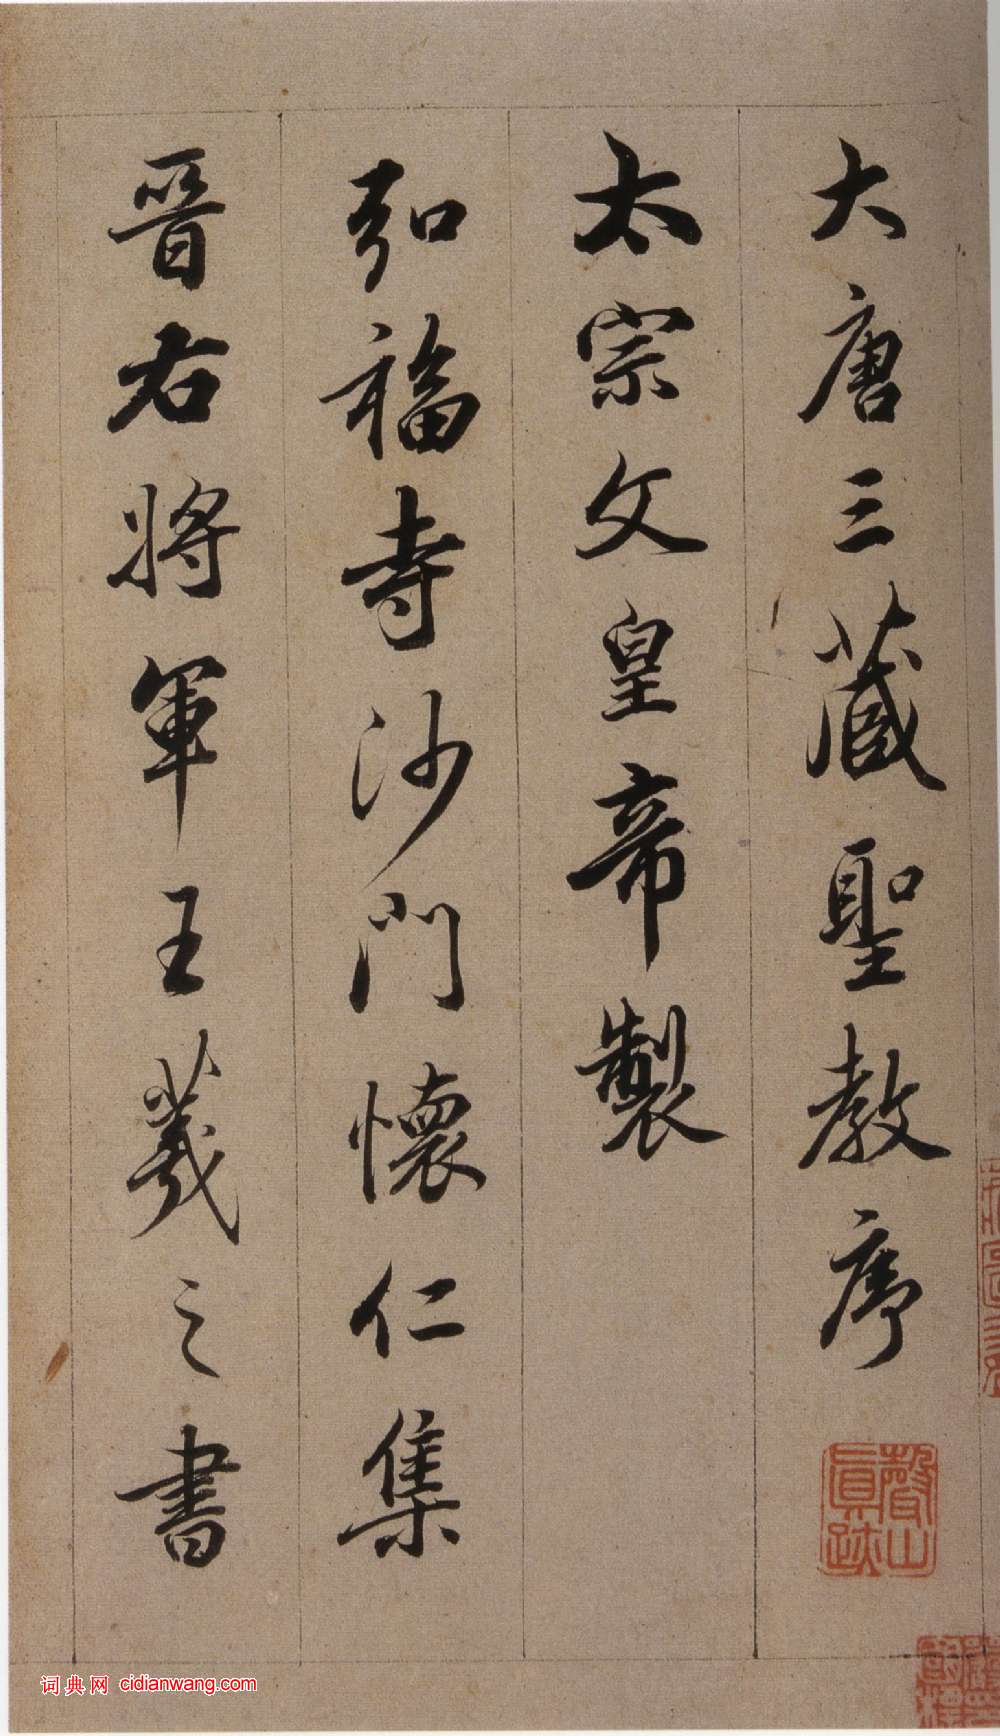 大唐三藏聖教序
太宗文皇帝製
弘福寺沙門懷仁集
晉右將軍王羲之書
真跡
词典网 cidianwang.com